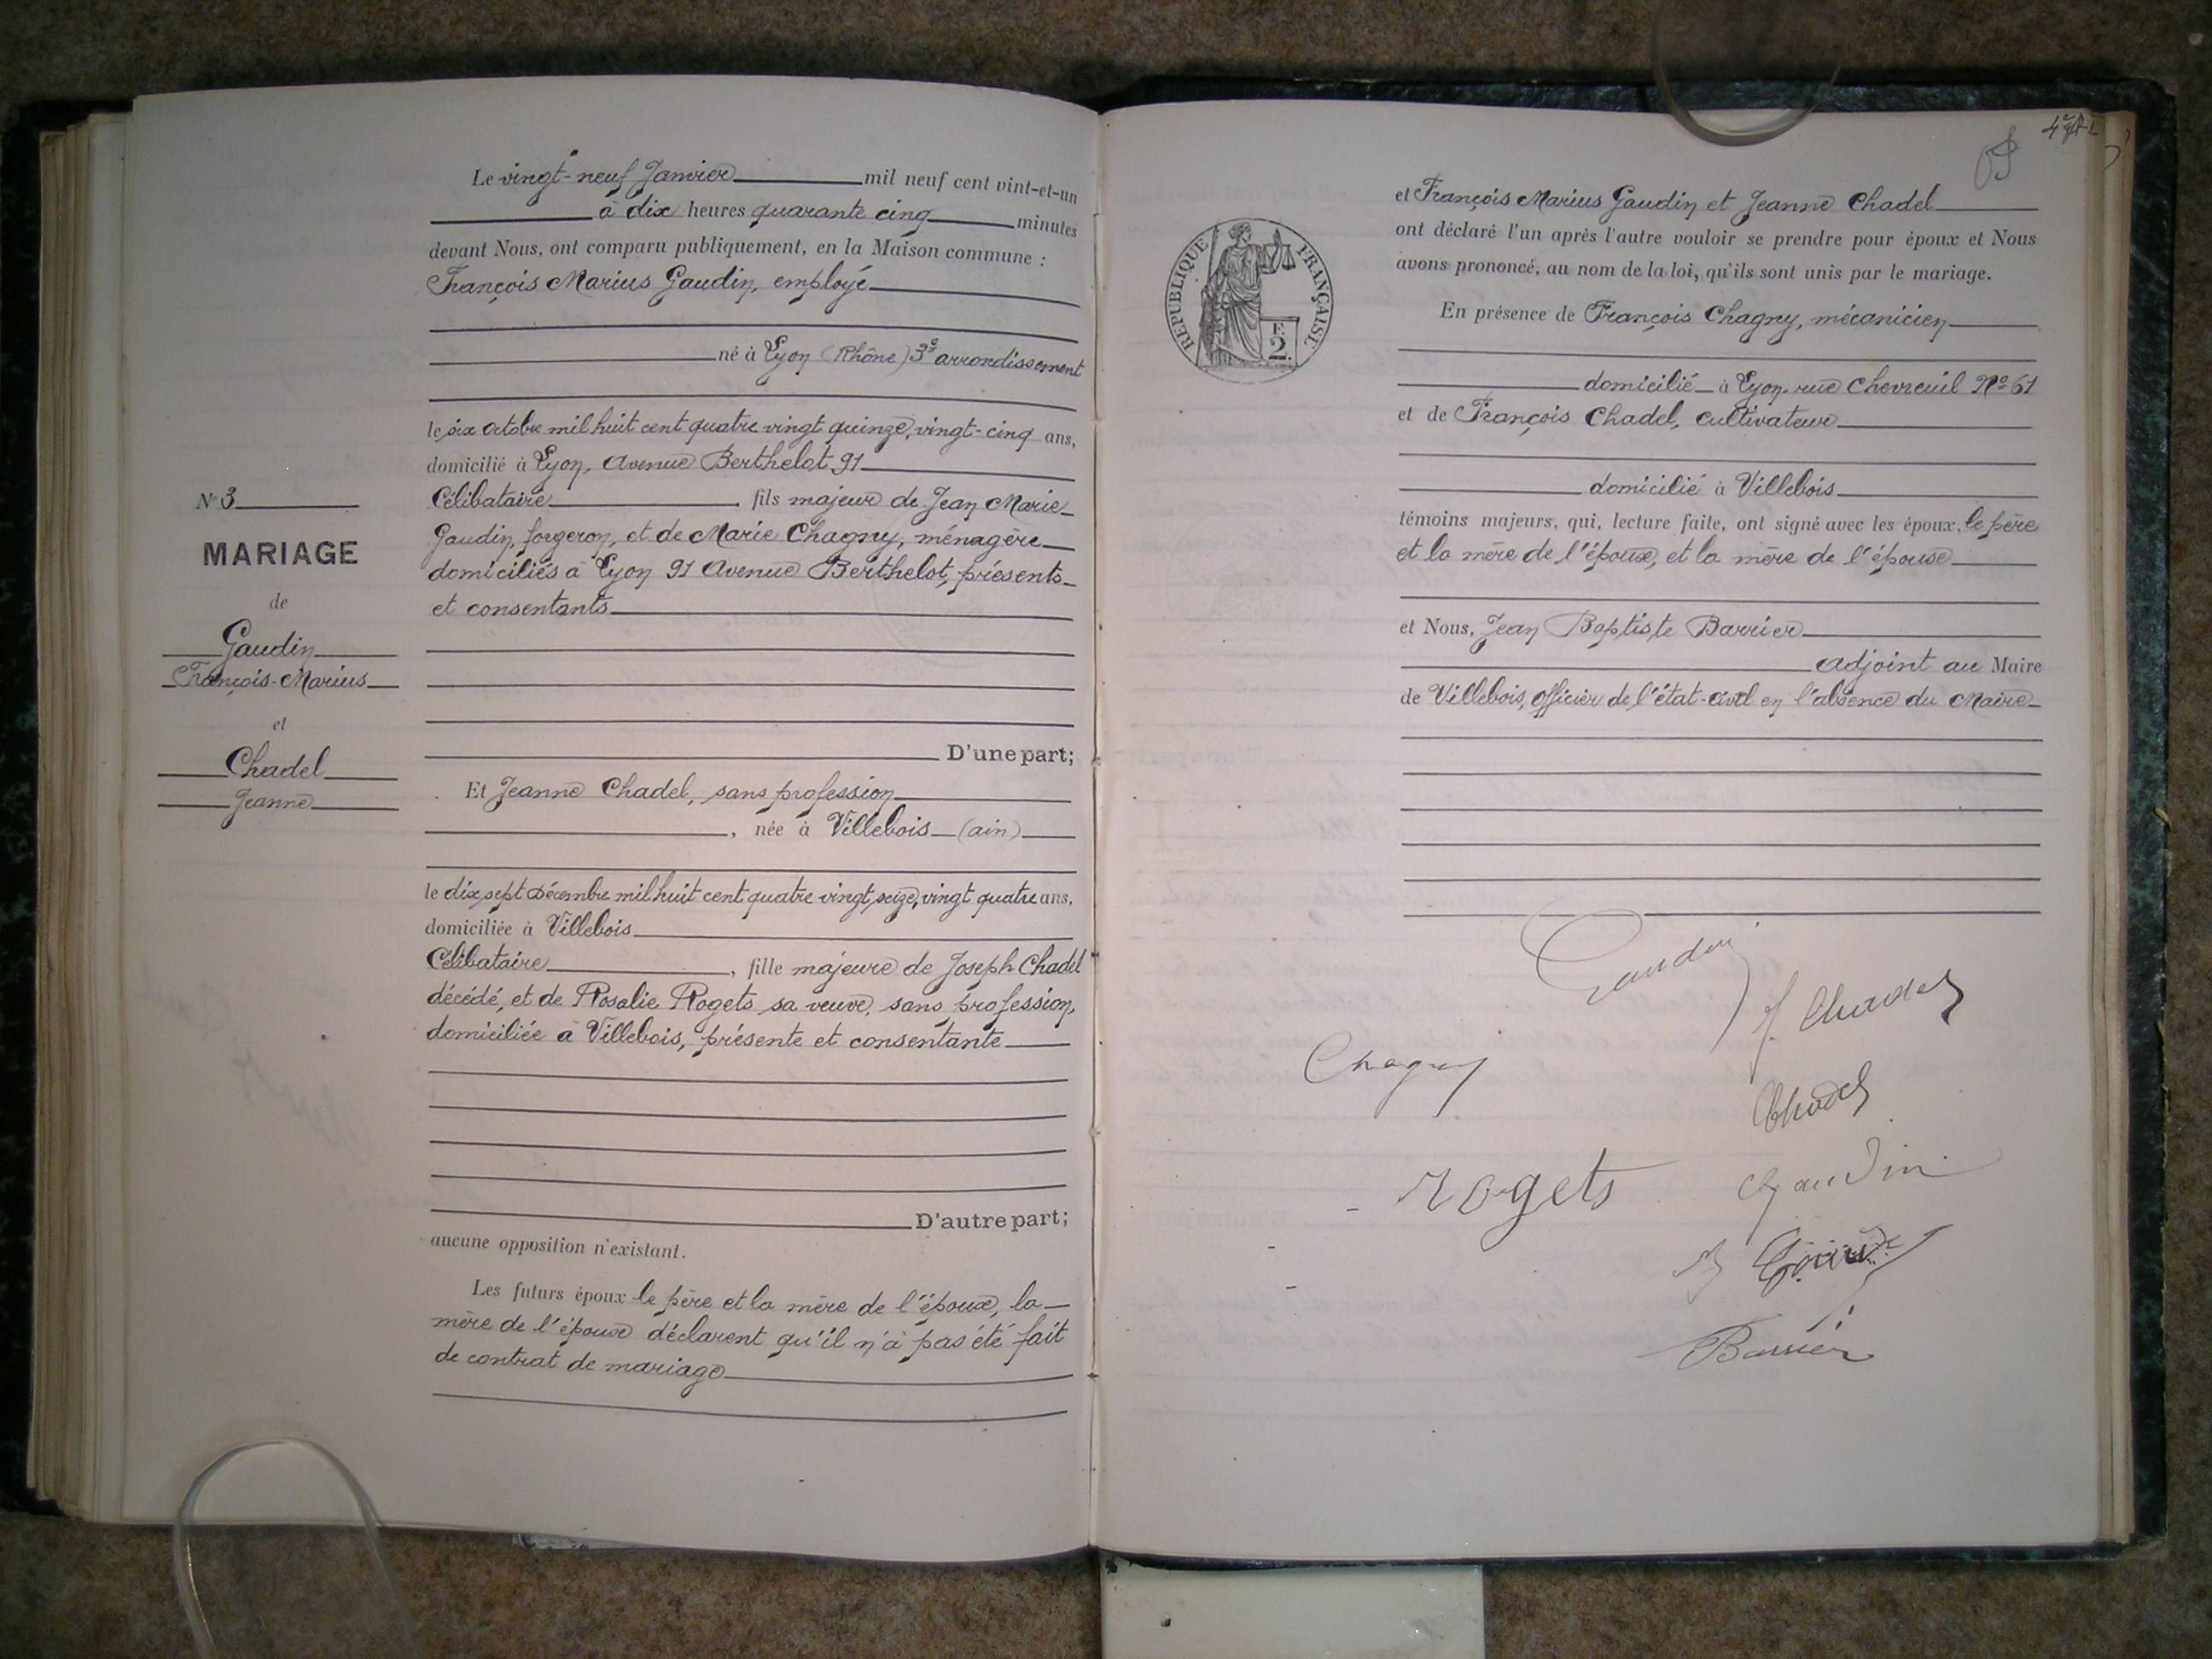 N° 3
MARIAGE
de
Gaudin
François-Marius
et
Chadel
Jeanne
Le vingt-neuf Janvier mil neuf cent vint-et-un
à dix heures quarante cinq minutes
devant Nous, ont comparu publiquement, en la Maison commune :
François Marius Gaudin, employé
né à Lyon (Rhône) 3e arrondissement
le six octobre mil huit cent quatre vingt quinze, vingt-cinq ans,
domicilié à Lyon, Avenue Berthelot 91
Célibataire fils majeur de Jean Marie
Gaudin, forgeron, et de Marie Chagny, ménagère
domiciliés à Lyon 91 Avenue Berthelot, présents
et consentants
D'une part;
Et Jeanne Chadel, sans profession
, née à Villebois (ain)
le dix sept Décembre mil huit cent quatre vingt seize, vingt quatre ans,
domiciliée à Villebois
Célibataire, fille majeure de Joseph Chadel
décédé, et de Rosalie Rogets sa veuve, sans profession,
domiciliée à Villebois, présente et consentante
D'autre part;
aucune opposition n'existant.
Les futurs époux le père et la mère de l'époux, la
mère de l'épouse déclarent qu'il n'à pas été fait
de contrat de mariage
REPUBLIQUE FRANÇAISE
F.
2.
et François Marius Gaudin et Jeanne Chadel
ont déclaré l'un après l'autre vouloir se prendre pour époux et Nous
avons prononcé, au nom de la loi, qu'ils sont unis par le mariage.
En présence de François Chagny, mécanicien
domicilié à Lyon rue Chevreuil N° 61
et de François Chadel, cultivateur
domicilié à Villebois
témoins majeurs, qui, lecture faite, ont signé avec les époux, le père
et la mère de l'époux, et la mère de l'épouse
et Nous, Jean Baptiste Barrier
adjoint au Maire
de Villebois, officier de l'état-civil en l'absence du Maire
Gaudin
J. Chadel
Chagny
Chadel
rogets
Gaudin
Barrier